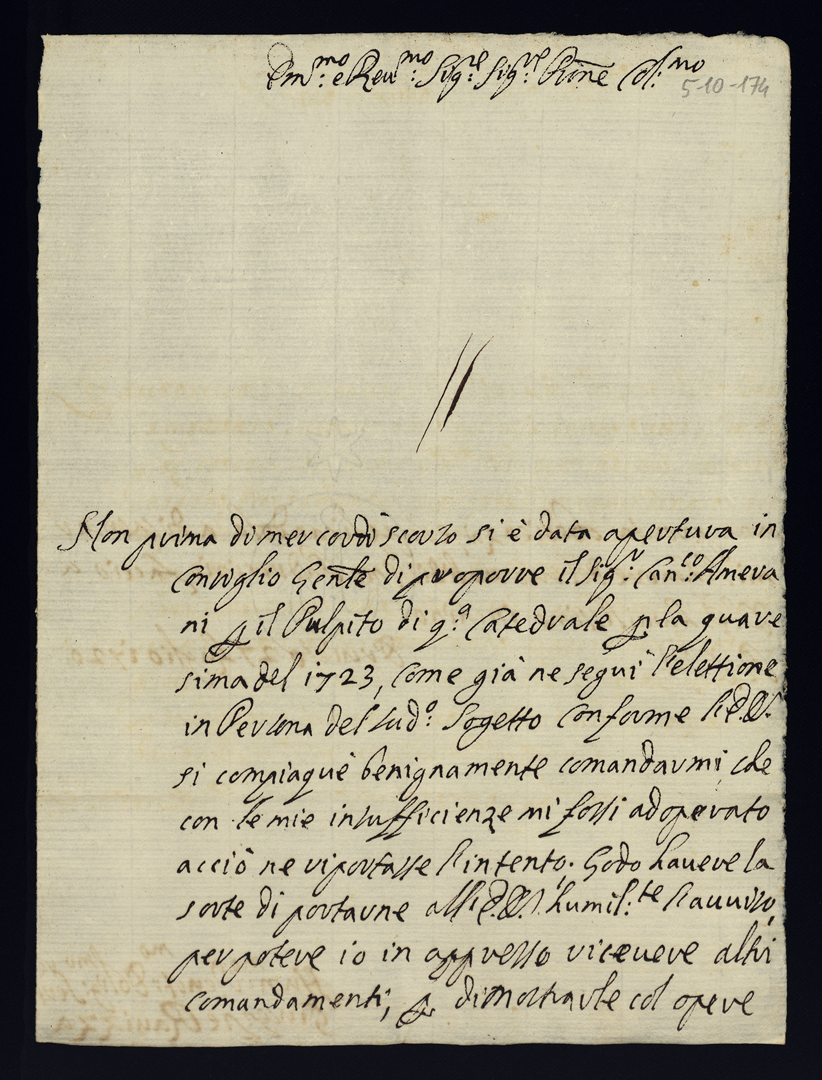 Em.mo e Reu.mo Sig.re Sig.re Prone Col.mo
5-10-174
Non prima di mercordi scorso si è data apertura in
Consiglio Genle di proporre il Sig.r Can.co Amera
ni p il Pulpito di q.a Catedrale p la quare
sima del 1723, come già ne seguì l'elettione
in Persona del sud.o Sogetto conforme l'E.V.
si compiaque benignamente comandarmi, che
con le mie insufficienze mi fossi adoperato
acciò ne riportasse l'intento. Godo havere la
sorte di portarne all'E.V. humil.te l'auuiso,
per potere io in appresso riceuere altri
comandamenti, p dimostrarle col opere